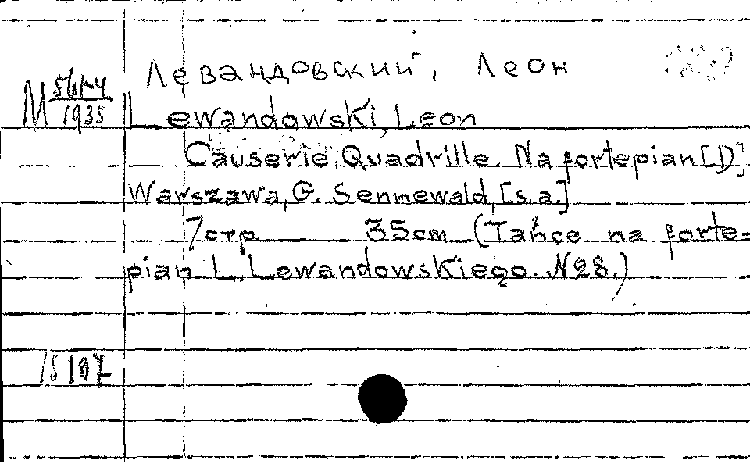 Левандовский, Леон
M 56174/1935
Lewandowski, Leon
Causerie. Quadrille. Na fortepian [1)]
Warszawa, G. Sennewald, [s.a.]
7 стр 35 см (Tańce na forte=
pian L. Lewandowskiego. №28.)
15107